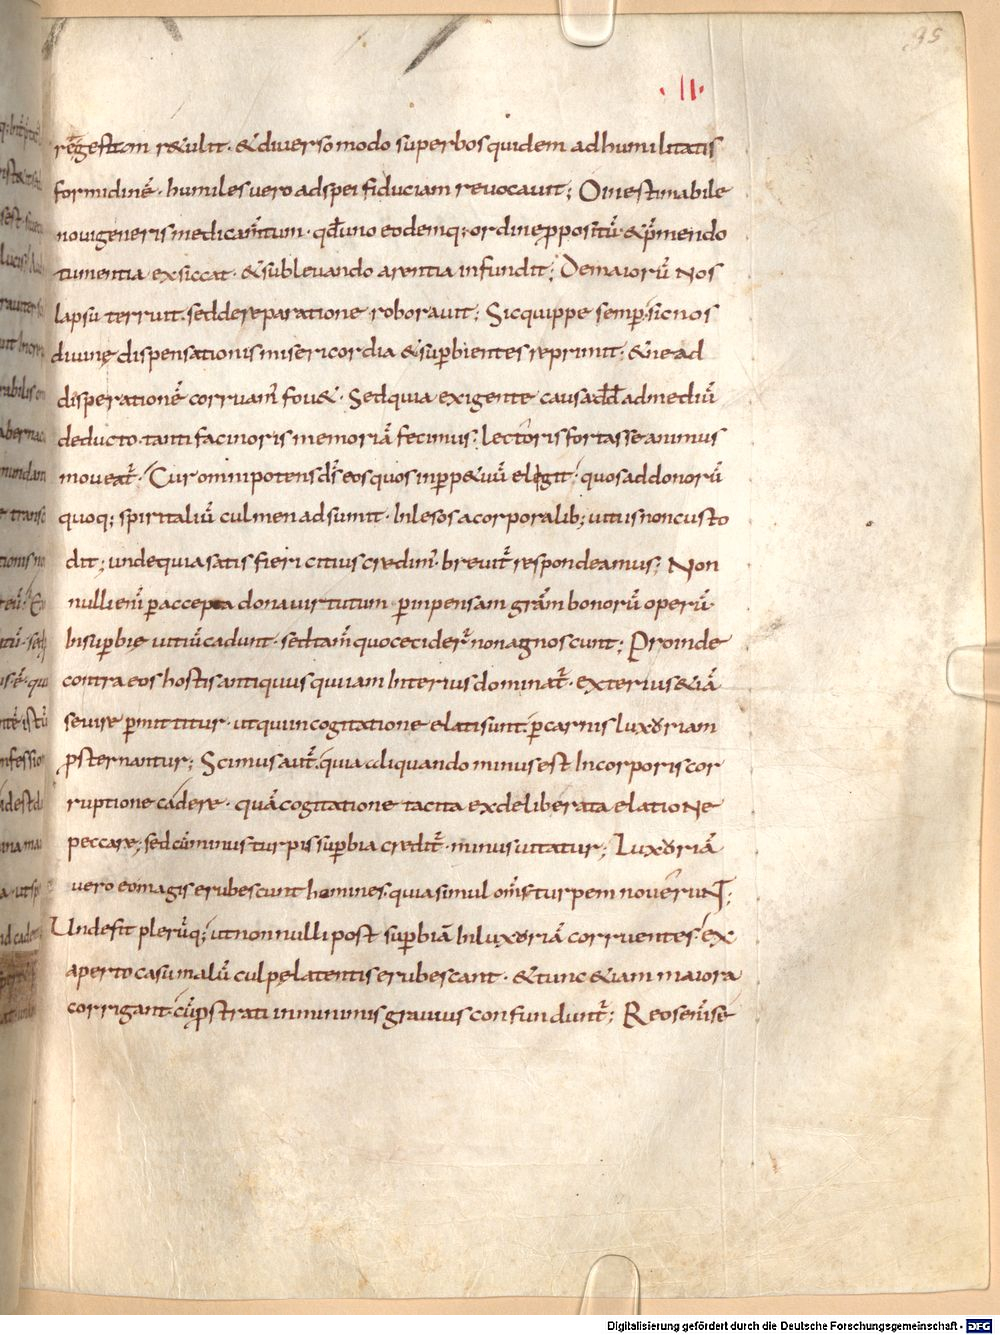 95
·II·
rē gestam r&ulit · & diverso modo superbos quidem ad humilitatis
formidinē · humiles vero ad spei fiduciam revocavit; O inestimabile
novi generis medicam̄tum · qd̄ uno eodemq; ordine ꝓpositū · & p̄mendo
tumentia exsiccat · & sublevando arentia infundit; De maiorū nos
lapsu terruit · sed de reparatione roboravit; Sic quippe semp̱ sic nos
divinę dispensationis misericordia & sup̱bientes reprimit · & ne ad
disperationē corruam̄ fov& · Sed quia exigente causa dd̄ ad mediū
deducto · tanti facinoris memoriā fecimus; lectoris fortasse animus
moveat̄ · Cur omnipotens ds̄ eos quos in p̱p&uū elegit; quos ad donorū
quoq; spiritaliū culmen adsumit · Inlesos a corporalib; vitiis non custo
dit; unde quia satisfieri citius credim̄ · brevit̄ respondeamus; Non
nulli eni̅ p̱ accepta dona virtutum p̱ inpensam grām bonorū operū ·
In superbie vitiū cadunt · sed tam̄ quo cecider̄ non agnoscunt; Proinde
contra eos hostis antiquus qui iam Interius dominat̄ · exterius &iā
sevire p̱mittitur · ut qui in cogitatione elati sunt · p̱ carnis luxoriam
ꝓsternantur; Scimus aut̄ · quia aliquando minus est In corporis cor
ruptione cadere · quā cogitatione tacita ex deliberata elatione
peccare; sed cū minus turpis sup̱bia credit̄ · minus vitatur; Luxoriā
vero eo magis erubescunt homines · quia simul om̄s turpem noverunt;
Unde fit plerūq; ut nonnulli post sup̱biā In luxoriā corruentes · ex
aperto casu malū culpę latentis erubescant · & tunc &iam maiora
corrigant cū ꝓstrati in minimis gravius confundunt̄; Reos eni̅ se
Digitalisierung gefördert durch die Deutsche Forschungsgemeinschaft - DFG